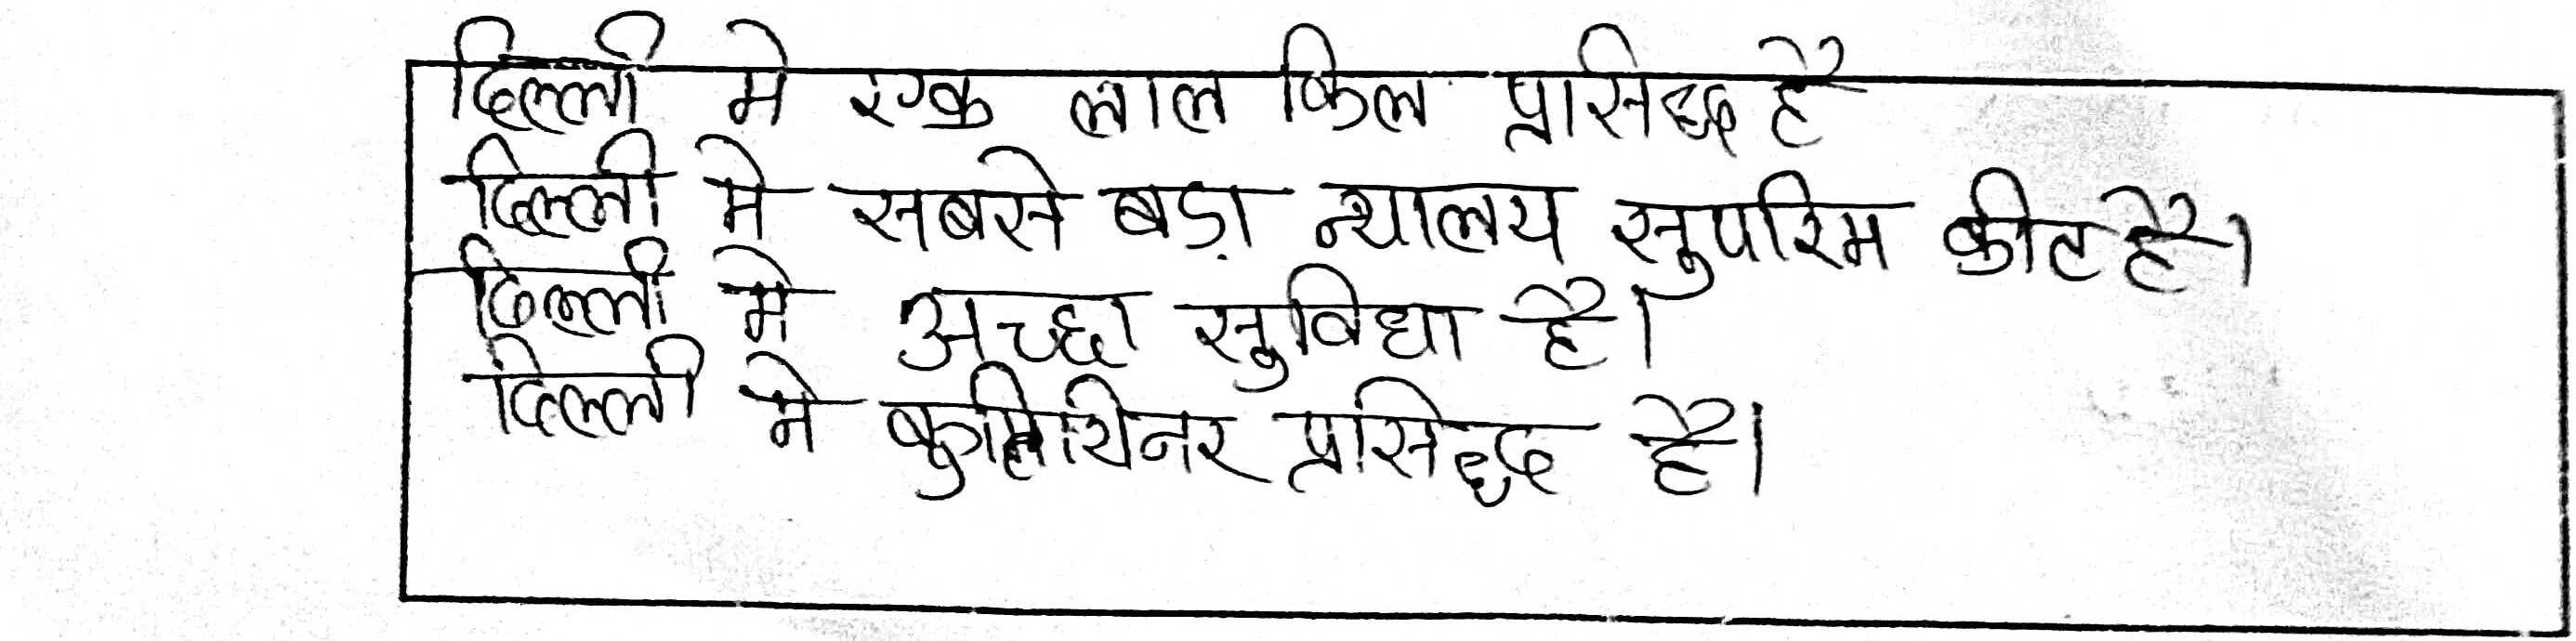 दिल्ली मे एक लाल किल प्रसिध्द है
दिल्ली मे सबसे बड़ा न्यालय सुपरिम कीट है।
दिल्ली मे अच्छा सुविधा है।
दिल्ली मे प्रसिध्द है।